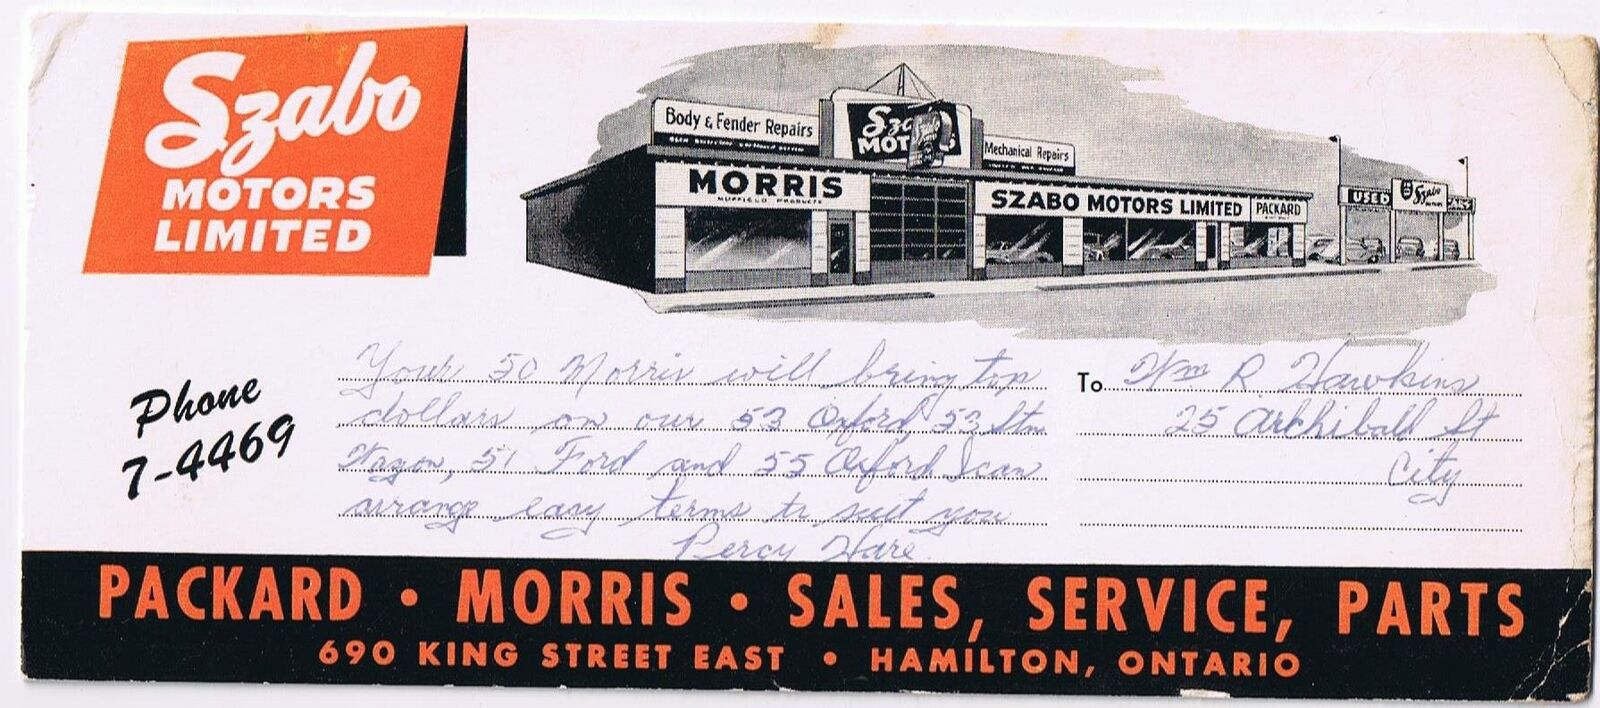 Szabo
MOTORS
LIMITED
Body & Fender Repairs
Szabo
MOTORS
Mechanical Repairs
MORRIS
NUFFIELD PRODUCTS
SZABO MOTORS LIMITED
PACKARD
USED
Szabo
CARS
Phone
7-4469
Your 50 Morris will bring top
dollars on our 53 Oxford, 53 Stn
Wagon, 51 Ford and 55 Oxford I can
arrange easy terms to suit you
Percy Hare.
To Wm R Hawkins
25 Archibald St
City
PACKARD • MORRIS • SALES, SERVICE, PARTS
690 KING STREET EAST • HAMILTON, ONTARIO